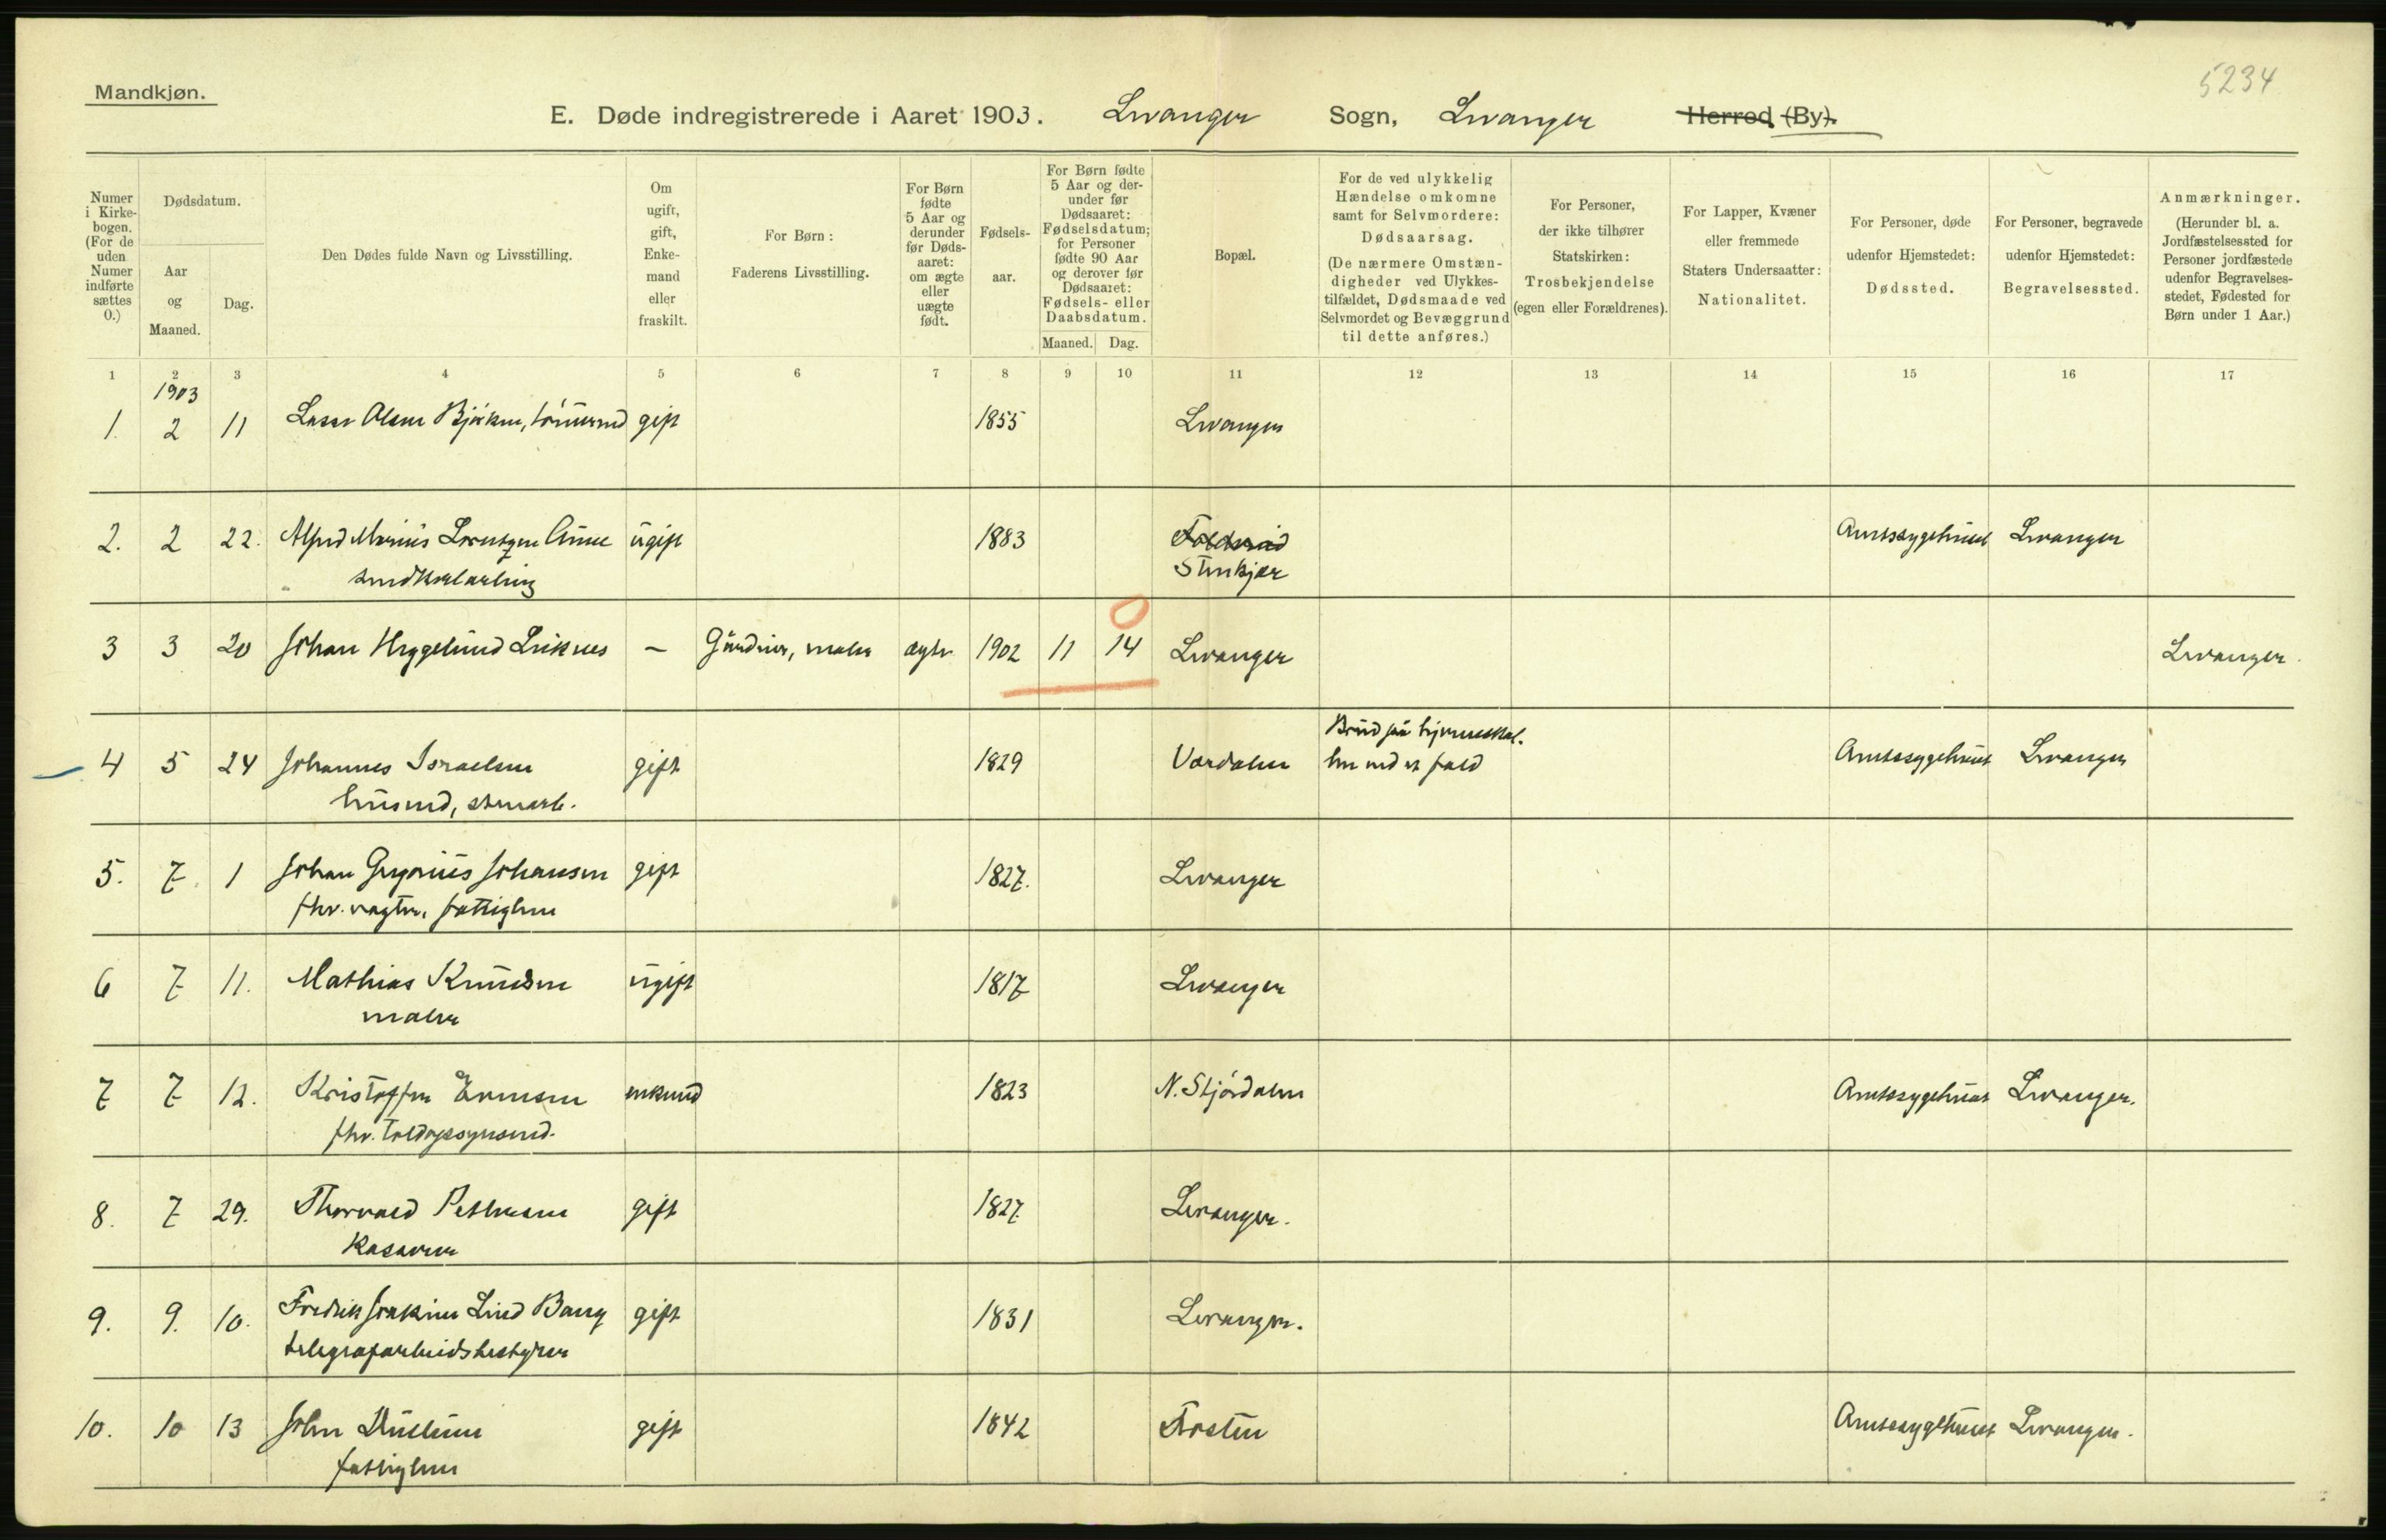 Mandkjøn.
5234
E. Døde indregistrerede i Aaret 1903. Levanger Sogn, Levanger Herred (By).
Numer i Kirkebogen. (For de uden Numer indførte sættes 0.)
Dødsdatum.
Aar og Maaned.
Dag.
Den Dødes fulde Navn og Livsstilling.
Om ugift, gift, Enkemand eller fraskilt.
For Børn: Faderens Livsstilling.
For Børn fødte 5 Aar og derunder før Dødsaaret: om ægte eller uægte født.
Fødselsaar.
For Børn fødte 5 Aar og derunder før Dødsaaret: Fødselsdatum; for Personer fødte 90 Aar og derover før Dødsaaret: Fødsels- eller Daabsdatum.
Maaned. Dag.
Bopæl.
For de ved ulykkelig Hændelse omkomne samt for Selvmordere: Dødsaarsag. (De nærmere Omstændigheder ved Ulykkestilfældet, Dødsmaade ved Selvmordet og Bevæggrund til dette anføres.)
For Personer, der ikke tilhører Statskirken: Trosbekjendelse (egen eller Forældrenes).
For Lapper, Kvæner eller fremmede Staters Undersaatter: Nationalitet.
For Personer, døde udenfor Hjemstedet: Dødssted.
For Personer, begravede udenfor Hjemstedet: Begravelsessted.
Anmærkninger. (Herunder bl. a. Jordfæstelsessted for Personer jordfæstede udenfor Begravelsesstedet, Fødested for Børn under 1 Aar.)
1 2 3 4 5 6 7 8 9 10 11 12 13 14 15 16 17
1903
1. 2 11 Lasse Olsen Bjørken, tømmermd gift 1855 Levanger
2. 2 22. Alfred Marius Lorentzen Aune ugift 1883 Amtssygehuset Levanger
Stenkjær
3 3 20 Johan Heggelund Leiknes – maler ægte 1902 11 14 Levanger Levanger
0
4 5 24 Johannes Israelsen gift 1829 Værdalen Brud paa hjerneskallen ved et fald Amtssygehuset Levanger
husmd, stenarb.
5. 7. 1 Johan Gregorius Johansen gift 1827. Levanger
fhv. vægter, fattiglem
6 7 11. Mathias Knudsen ugift 1817 Levanger
maler
7 7 12. Kristoffer enkemd 1823 N. Stjørdalen Amtssygehuset Levanger.
fhv. toldopsynsmd.
8. 7 29. Thorvald gift 1827 Levanger.
Kasserer
9. 9. 10. Fredrik Joakim Lind Bang gift 1831 Levanger.
telegrafarbeidsbestyrer
10. 10 13 John gift 1842 Frosten Amtssygehuset Levanger.
fattiglem